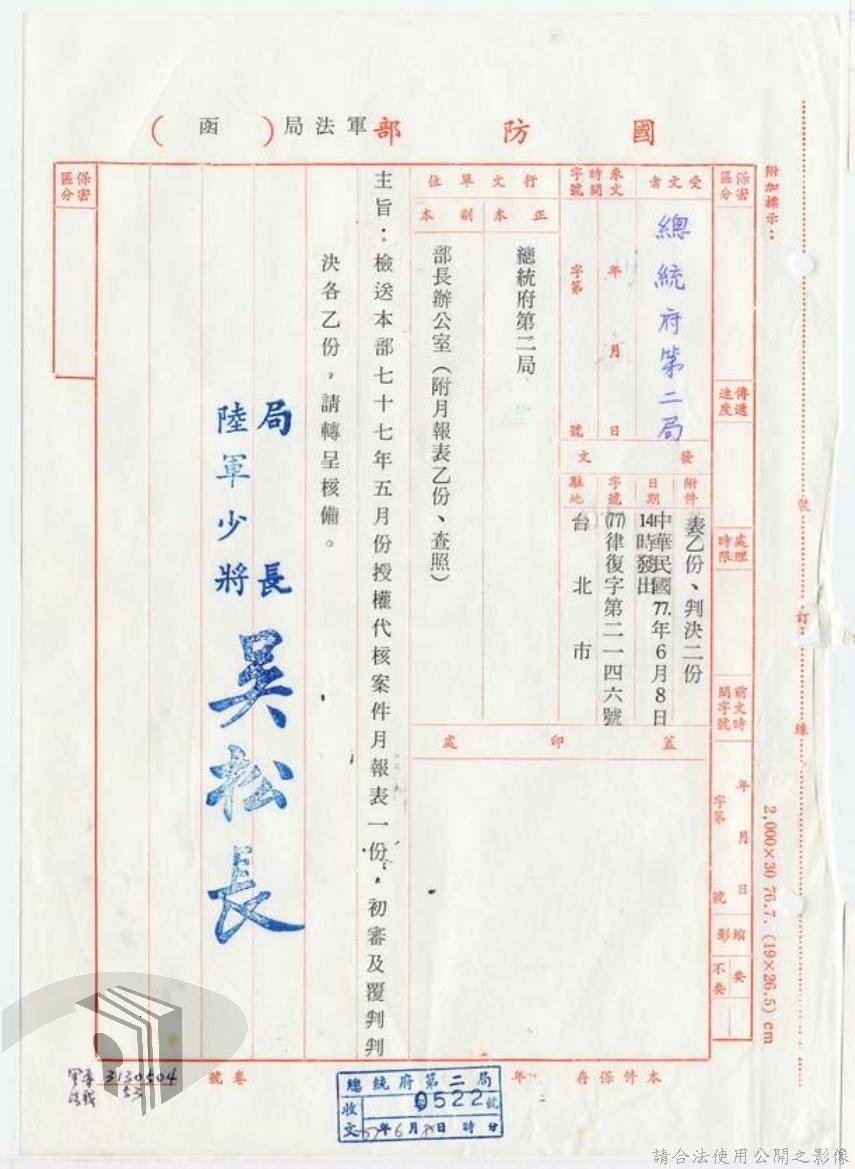 國防部軍法局(函)
附加標示：
裝訂線
2,000×30 76.7. (19×26.5) cm
保密區分
傳遞速度
處理時限
前文時間字號
年月日
字第號
縮影
要
不要
受文者
總統府第二局
來文時間字號
年月日
字第號
發文
附件
表乙份、判決二份
日期
中華民國77.年6月8日
14時發出
字號
(77)律復字第二一四六號
駐地
台北市
行文單位
正本
總統府第二局
副本
部長辦公室（附月報表乙份、查照）
蓋印處
主旨：檢送本部七十七年五月份授權代核案件月報表一份，初審及覆判判
決各乙份，請轉呈核備。
局長
陸軍少將吳松長
保密區分
本件保存年
卷號
3130504
53
總統府第二局
收文
0522號
年6月日時分
請合法使用公開之影像